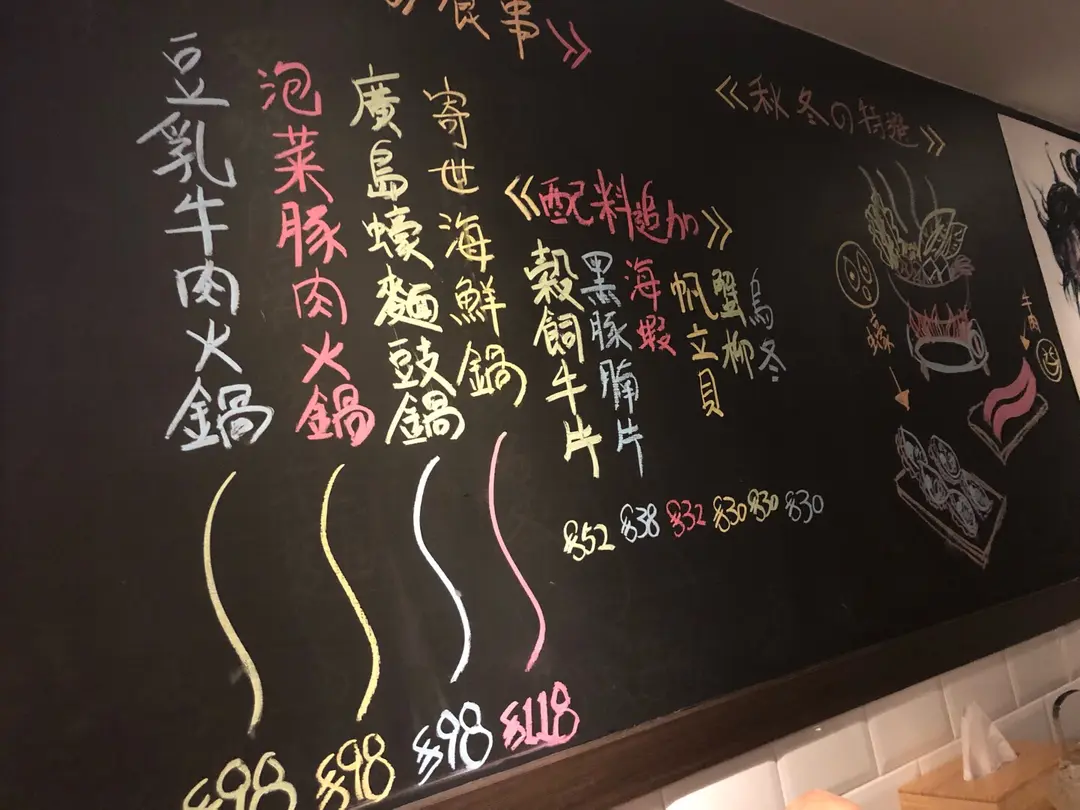 の食事》
豆乳牛肉火鍋
泡菜豚肉火鍋
廣島蠔麵豉鍋
寄世海鮮鍋
$98
$98
$98
$118
《配料追加》
穀飼牛片
黑豚腩片
海蝦
帆立貝
蟹柳
烏冬
$52 $38 $32 $30 $30 $30
《秋冬の特選》
蠔
牛肉